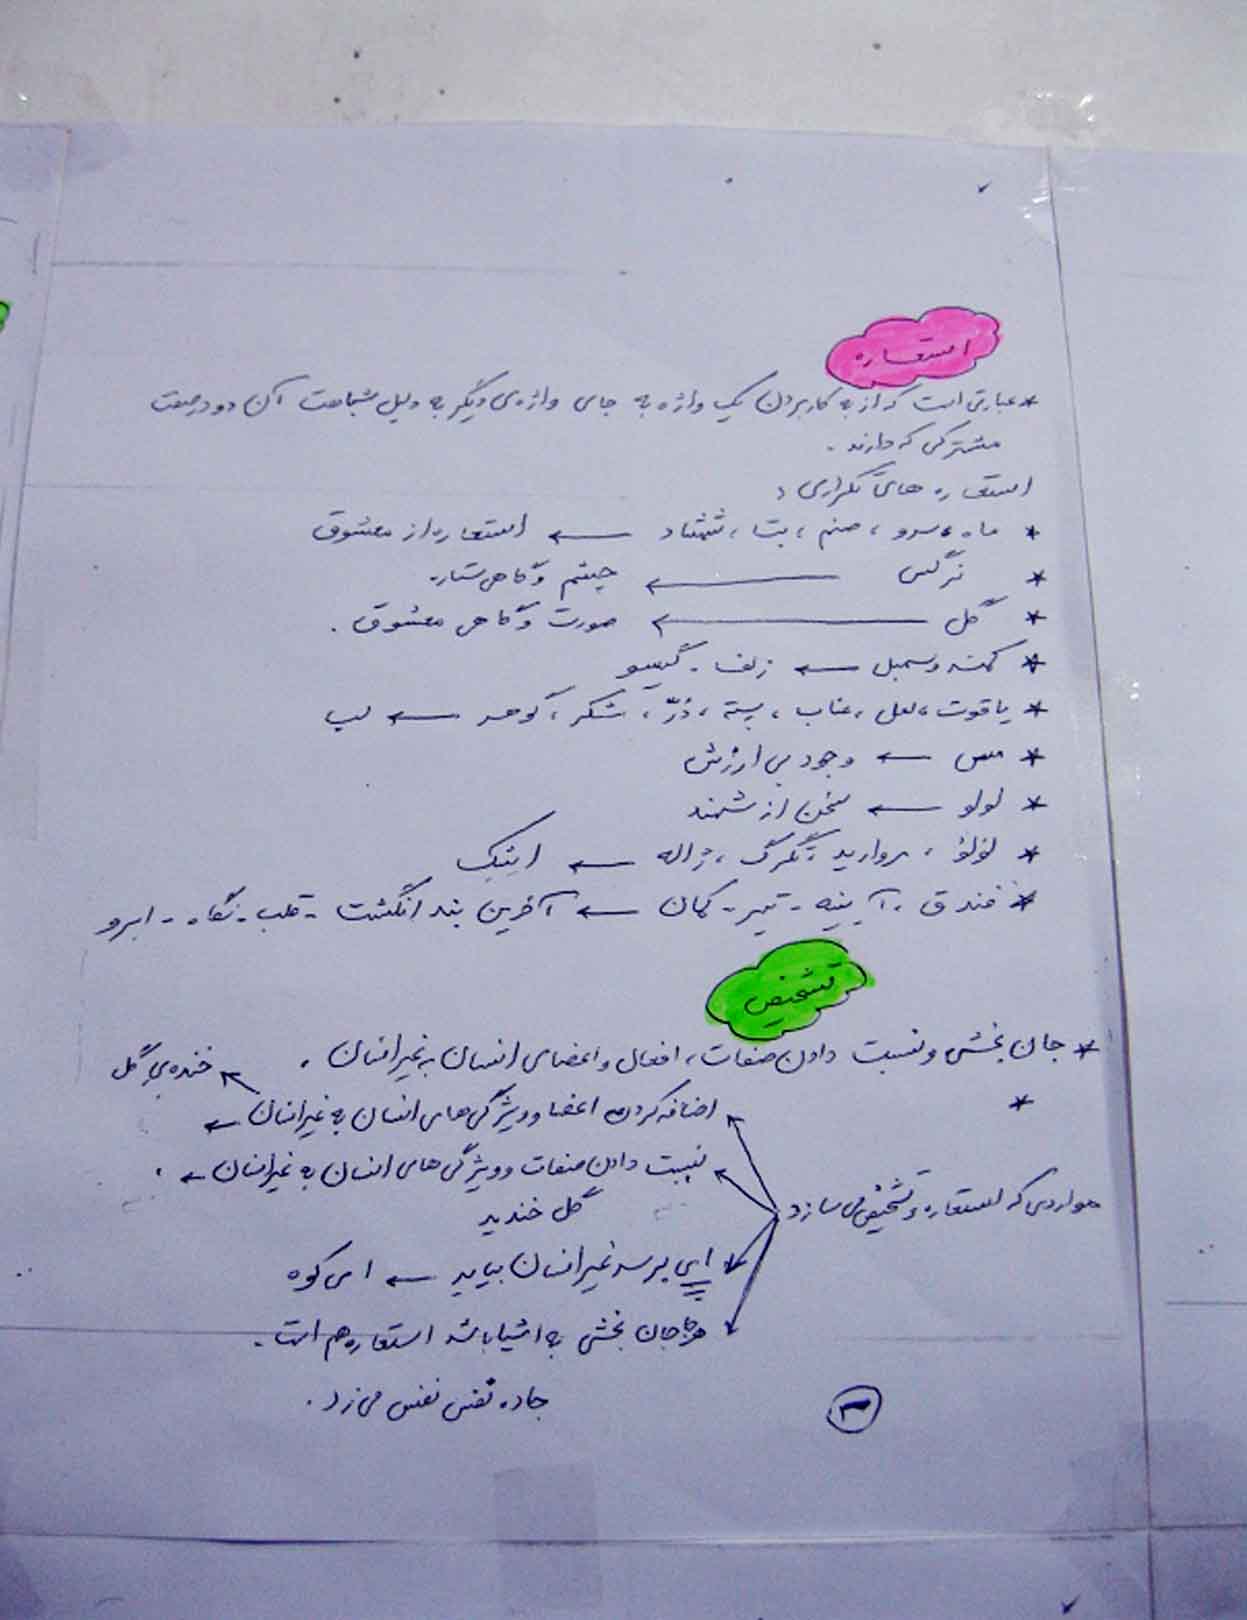 استعاره
* عبارتی است که از به کار بردن یک واژه به جای واژه‌ی دیگر به دلیل شباهت آن دو در صفت
مشترکی که دارند .
استعاره های تکراری :
* ماه ، سرو ، صنم ، بت ، شمشاد ← استعاره از معشوق
* نرگس ← چشم و گاهی ستاره
* گل ← صورت و گاهی معشوق .
* کمند و سمبل ← زلف - گیسو
* یاقوت ، لعل ، عناب ، پسته ، دُرّ ، شکر ، گوهر ← لب
* مس ← وجود بی ارزش
* لولو ← سخن ارزشمند
* لؤلؤ ، مروارید ، تگرگ ، ژاله ← اشک
* فندق - آیینه - تیر - کمان ← آخرین بند انگشت - قلب - نگاه - ابرو
تشخیص
* جان بخشی و نسبت دادن صفات ، افعال و اعضای انسان به غیر انسان .
*
مواردی که استعاره و تشخیص می سازد
اضافه کردن اعضا و ویژگی های انسان به غیر انسان ← خنده ی گل
نسبت دادن صفات و ویژگی های انسان به غیر انسان ← .
گل خندید
ای بر سر غیر انسان بیاید ← ای کوه
هر جا جان بخشی به اشیا باشد استعاره هم است .
جاده نفس نفس می زد .
۳